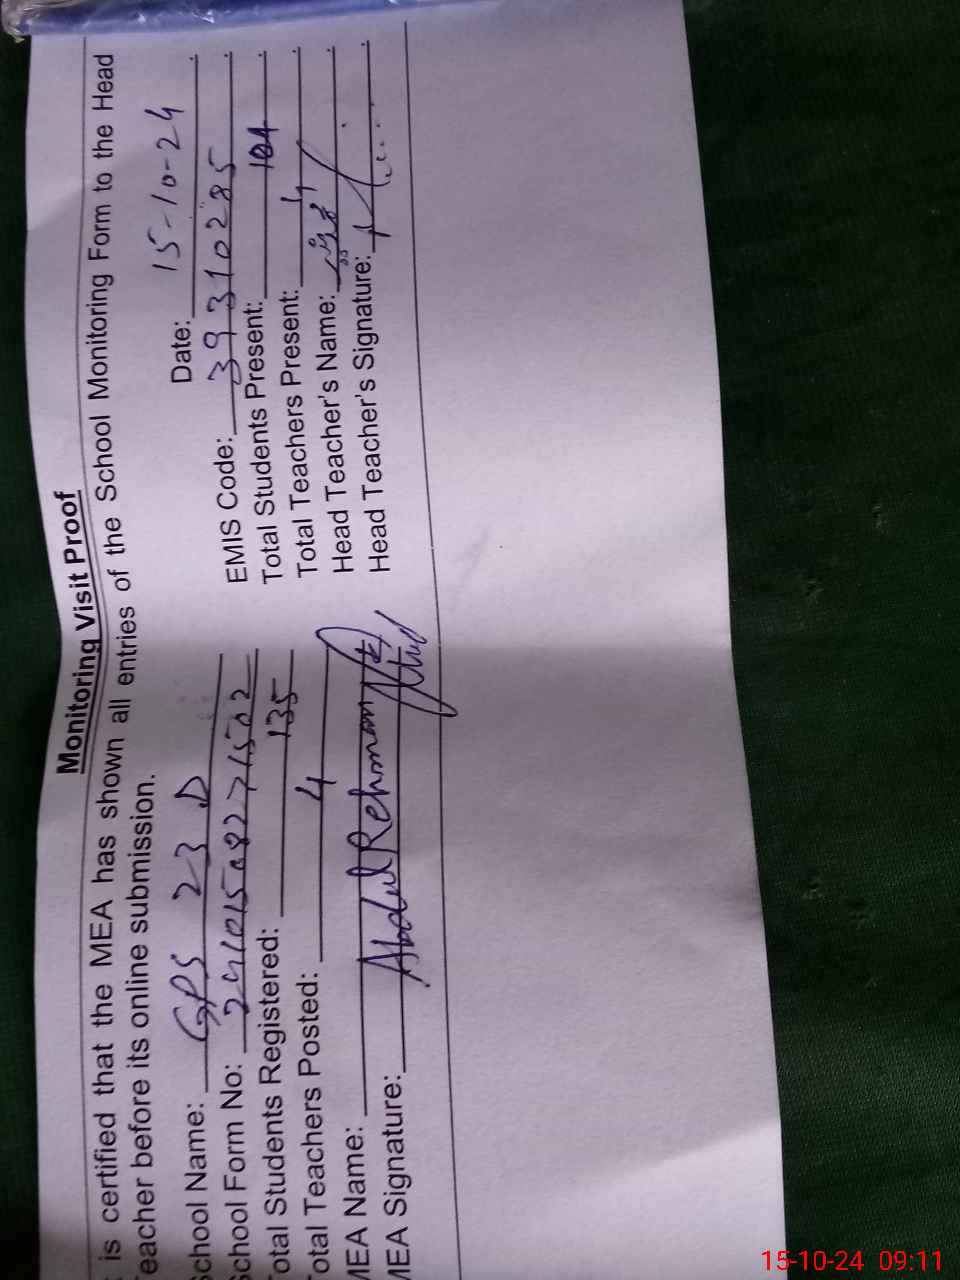 Monitoring Visit Proof
is certified that the MEA has shown all entries of the School Monitoring Form to the Head
Teacher before its online submission.
Date: 15-10-24
School Name: GPS 23 D
EMIS Code: 39310285
School Form No: 24101508271502
Total Students Present: 104
Total Students Registered: 135
Total Teachers Present: 4
Total Teachers Posted: 4
Head Teacher's Name:
MEA Name: Abdul Rehman
Head Teacher's Signature:
MEA Signature:
15-10-24 09:11